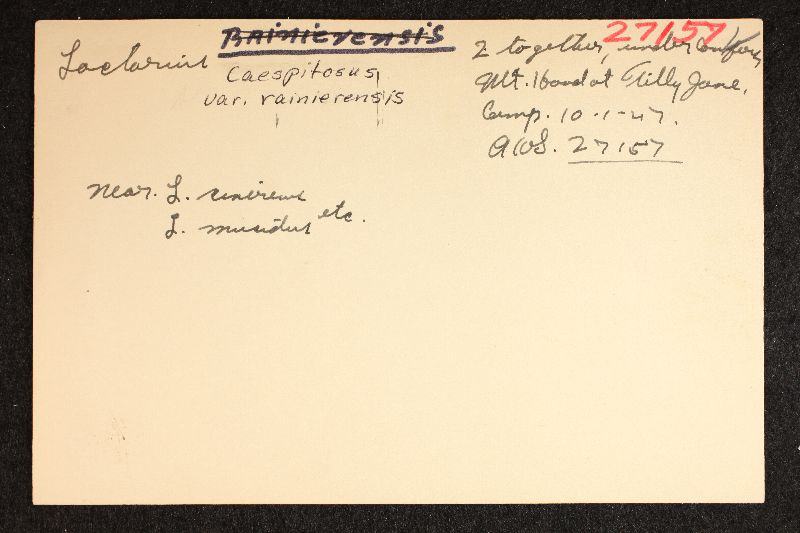 27157
Lactarius Rainierensis
Caespitosus
var. rainierensis
2 together, under conifers,
Mt. Hood at Tilly Jane,
Camp. 10-1-47.
AHS. 27157
near. L. cinereus
L. mucidus etc.